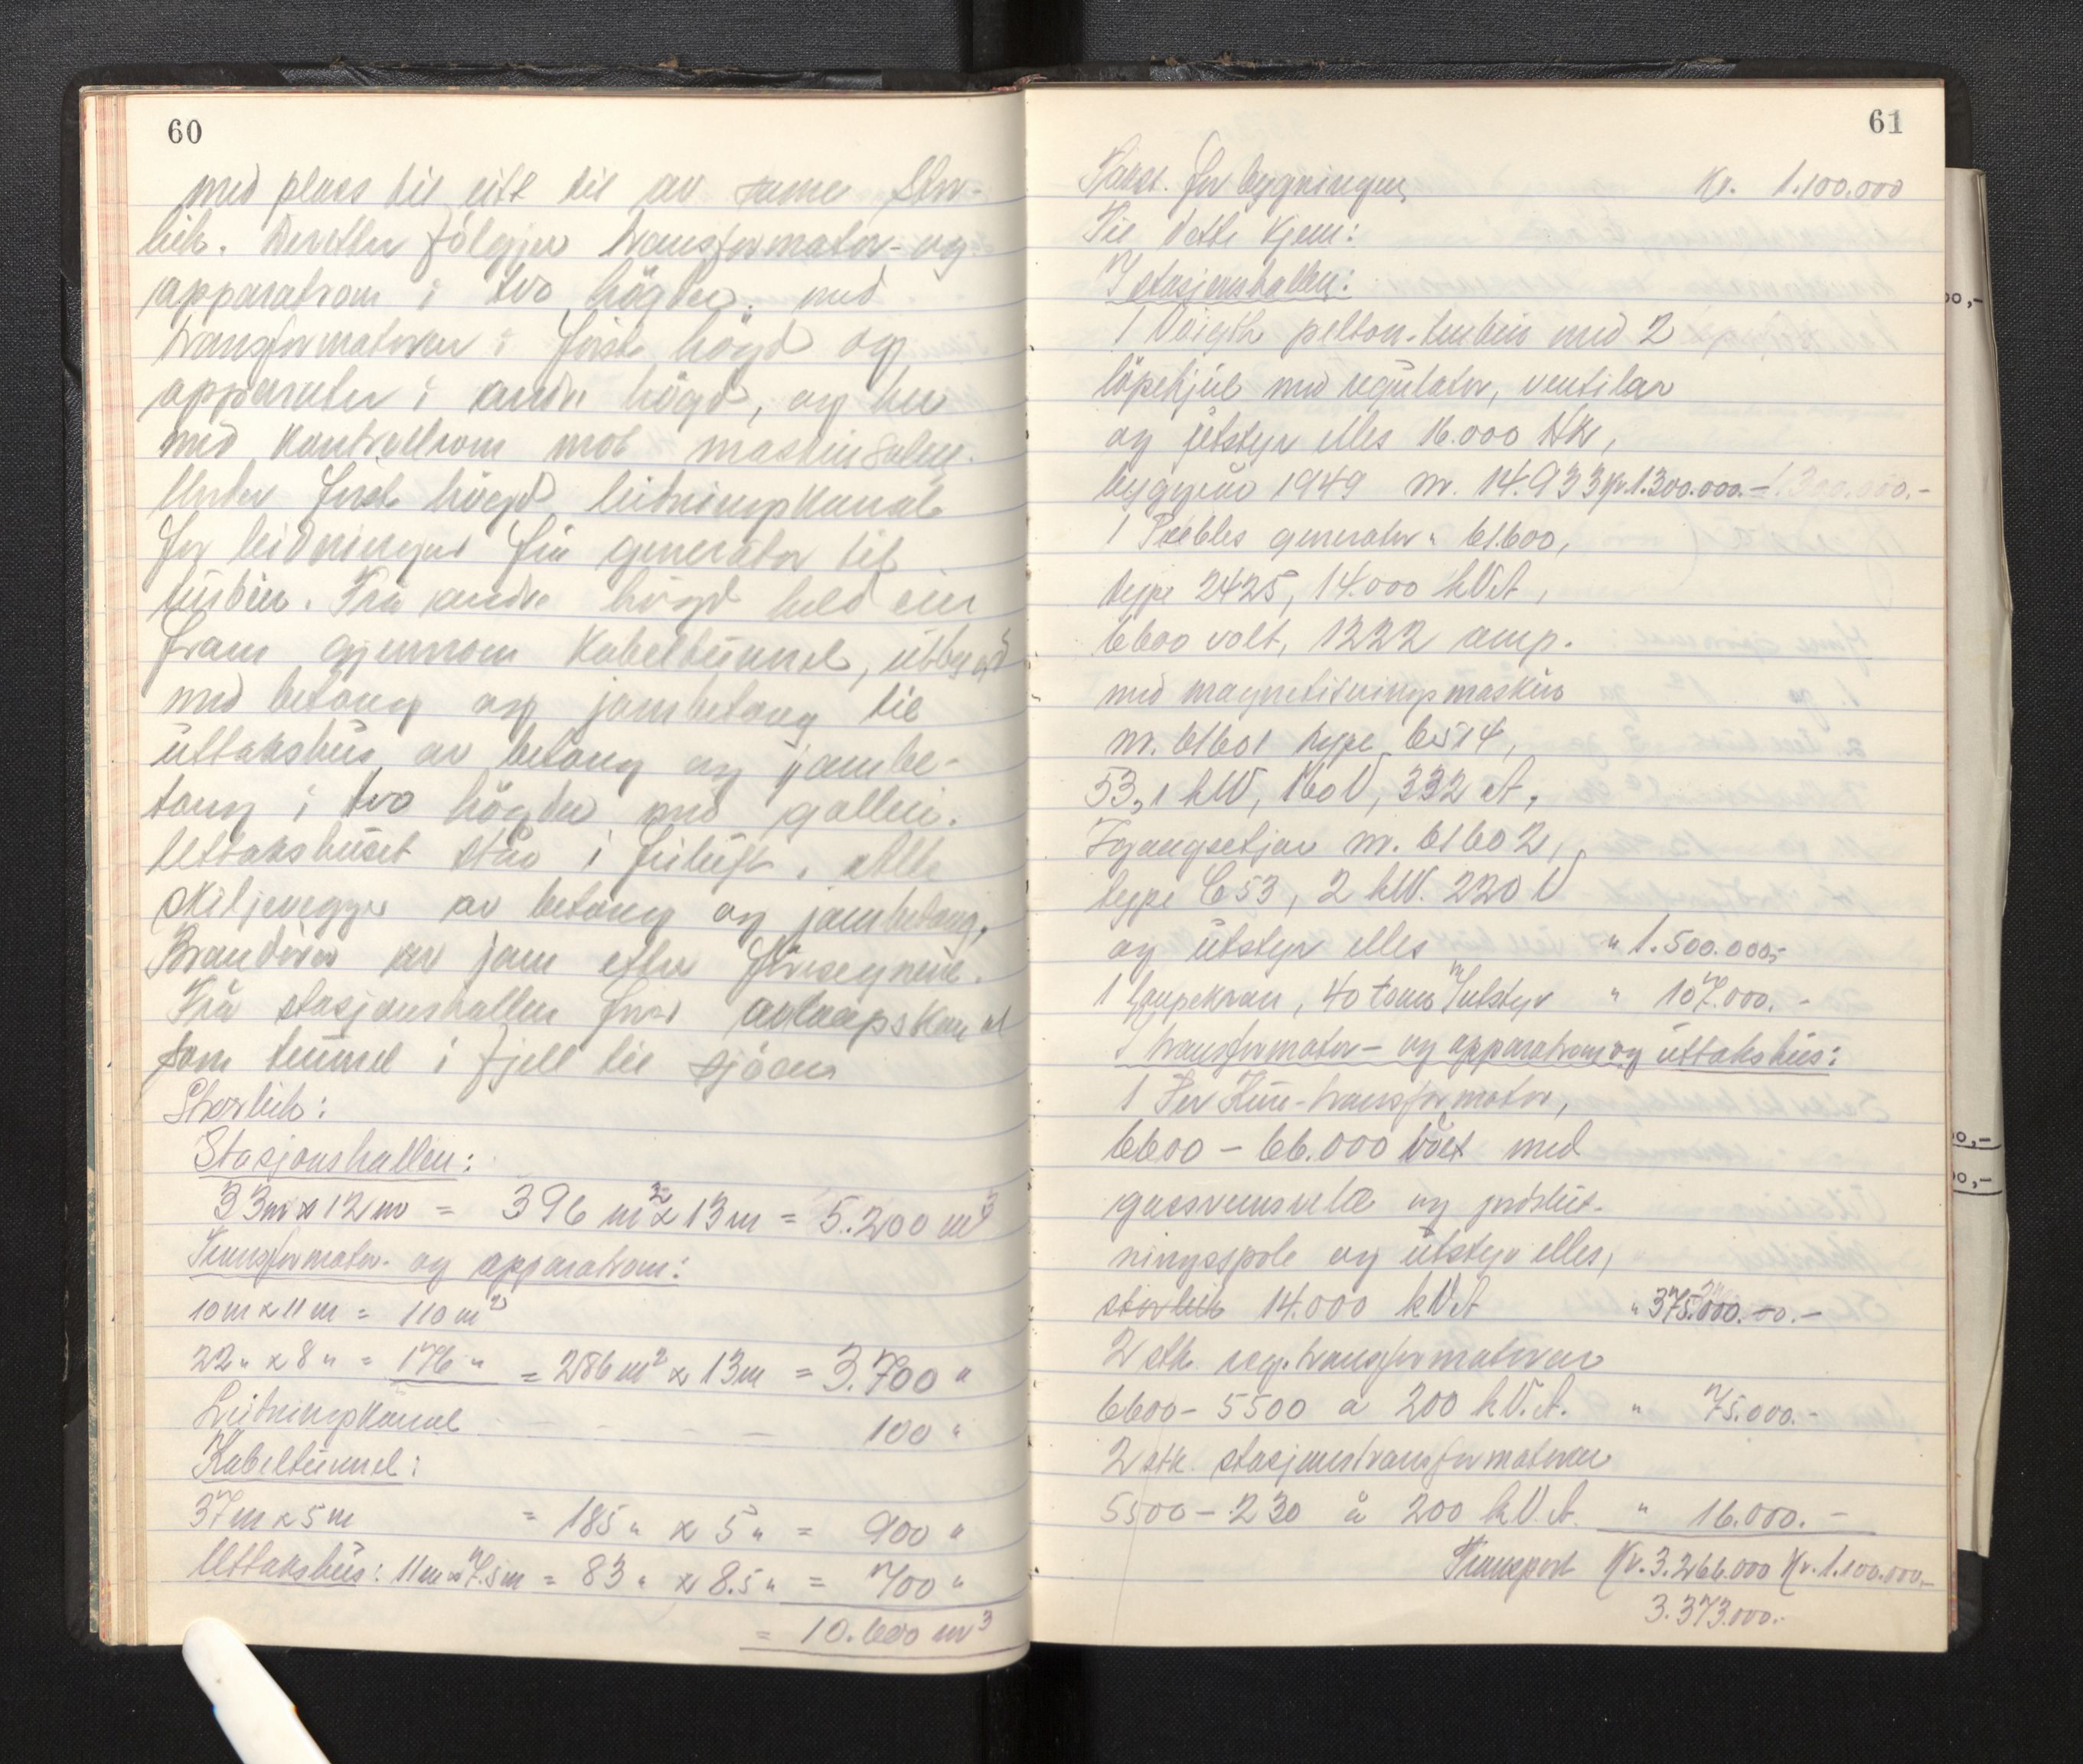 60
med plass til eitt til av same stor-
leik. Deretter fölgjer transformator- og
apparatrom i tvo högder. med
transformatorar i förste högd og
apparater i andre högd, og her
med kontrollrom mot maskinsalen.
Under förste högd leitningskanal
for leidningar frå generator til
turbin. Frå andre högd held ein
fram gjennom kabeltunnel, utbygd
med betong og jarnbetong til
uttakshus av betong og jarnbe-
tong i tvo högder med galleri.
Uttakshuset står i friluft. Alle
skiljevegger av betong og jarnbetong.
Branddörer av jarn etter föresegnene.
Frå stasjonshallen förer avlaupskanal
som tunnel i fjell til sjöen
Storleik:
Stasjonshallen:
33m x 12m = 396 m² x 13m = 5.200 m³
Transformator- og apparatrom:
10m x 11m = 110 m²
22 " x 8 " = 176 " = 286 m² x 13m = 3.700 "
Leitningskanal - - - - 100 "
Kabeltunnel:
37m x 5m = 185 " x 5 " = 900 "
Uttakshus: 11m x 7.5m = 83 " x 8.5 " = 700 "
= 10.600 m³
61
Takst for bygningen Kr. 1.100.000
Til dette kjem:
I stasjonshallen:
1 Voigth pelton-turbin med 2
löpehjul med regulator, ventilar
og utstyr elles 16.000 HK,
byggeår 1949 nr. 14.933 Kr. 1.300.000.- 1.300.000.-
1 Peebles generator " 61600,
type 2425, 14.000 kVA,
6600 volt, 1222 amp.
med magnetiseringsmaskin
nr. 61601 type 6514,
53,1 kW, 160 V, 332 A,
Igangsetjar nr. 61602,
type C53, 2 kW. 220 V
og utstyr elles " 1.500.000,-
1 laupekran, 40 tonns m/utstyr " 107.000.-
I transformator- og apparatrom og uttakshus:
1 Per Kure-transformator,
6600 - 66.000 volt med
gassvernrelé og jordslut-
ningsspole og utstyr elles,
storleik 14.000 kVA " 375.000.-
2 stk reg. transformatorar
6600 - 5500 a 200 kV.A. " 75.000.-
2 stk. stasjonstransformatorar
5500 - 230 à 200 kV.A. " 16.000.-
Transport Kr. 3.266.000 Kr. 1.100.000,-
3.373.000.-
00,-
00,-
00,-